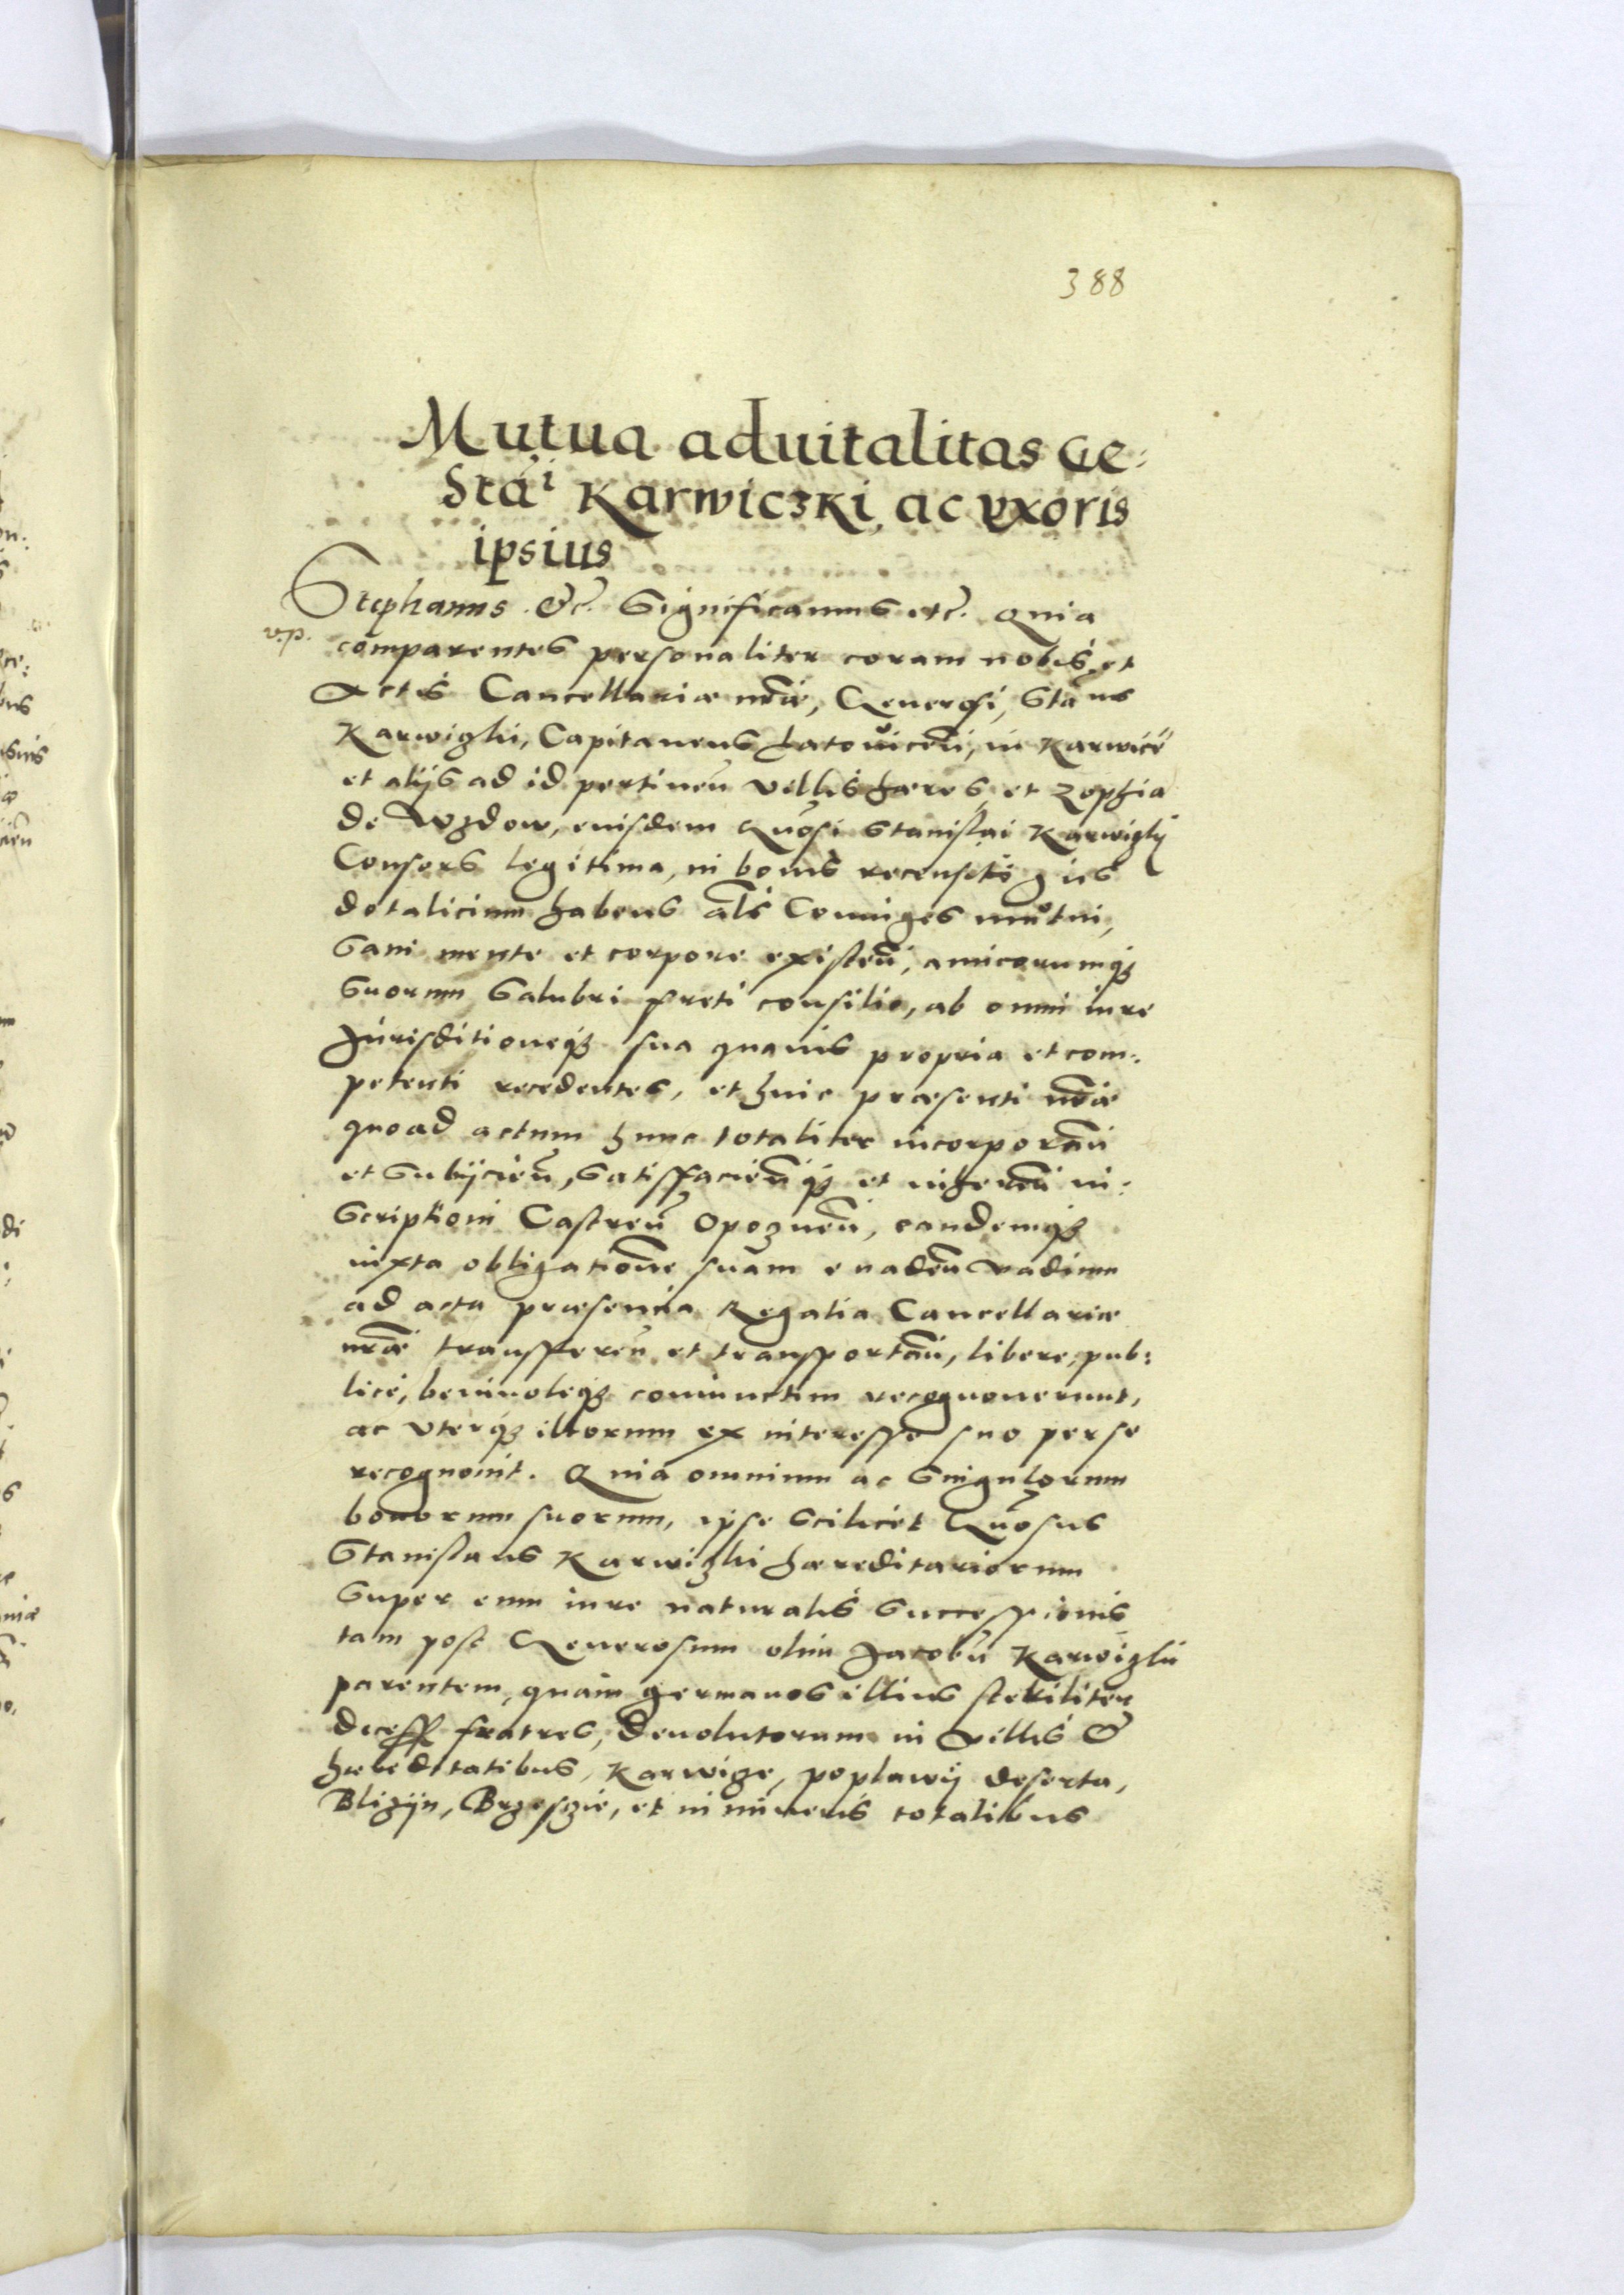 388
Mutua aduitalitas Ge:
Stai Karwiczki, ac vxoris
ipsius
Stephanus. &c. Significamus etc. Quia
v.p.
comparentes personaliter coram nobis, et
Actis Cancellariæ nræ, Generosi, Staus
Karwizki, Capitaneus in Karwicz
et alijs ad id pertineñ villis hæres, et Zophia
de Wzdow, eiusdem Gnosi Stanislai Karwizkj
Consors legitima, in bonis recensitis ius
dotalicium habens als Coniuges mutui,
Sani mente et corpore existeñ, amicorumq3
Suorum Salubri freti consilio, ab omni iure
Jurisditioneq3 sua quauis propria et com:
petenti recedentes, et huic præsenti nræ
quoad actum hunc totaliter incorporañ
et Subijcieñ, Satisfacieñq3 et inhereñ in:
Scriptioni Castreñ Opozneñ, eandemq3
iuxta obligatione suam euadeñ vadium
ad acta præsentia Regalia Cancellariæ
nræ transffereñ et transportañ, libere, pub:
lice, beniuoleq3 coniunctim recognouerunt,
ac vterq3 illorum ex interesse suo per se
recognouit. Quia omnium ac Singulorum
bonorum suorum, ipse Scilicet Gnosus
Stanislaus Karwizki hæreditariorum
Super eum iure naturalis Successionis
tam post Generosum olim Jacobũ Karwizki
parentem, quam germanos illius steriliter
decess fratres, deuolutorum in villis &
hæreditatibus, Karwize, poplawij deserta,
Blizijn, Brzesczie, et in muneris totalibus